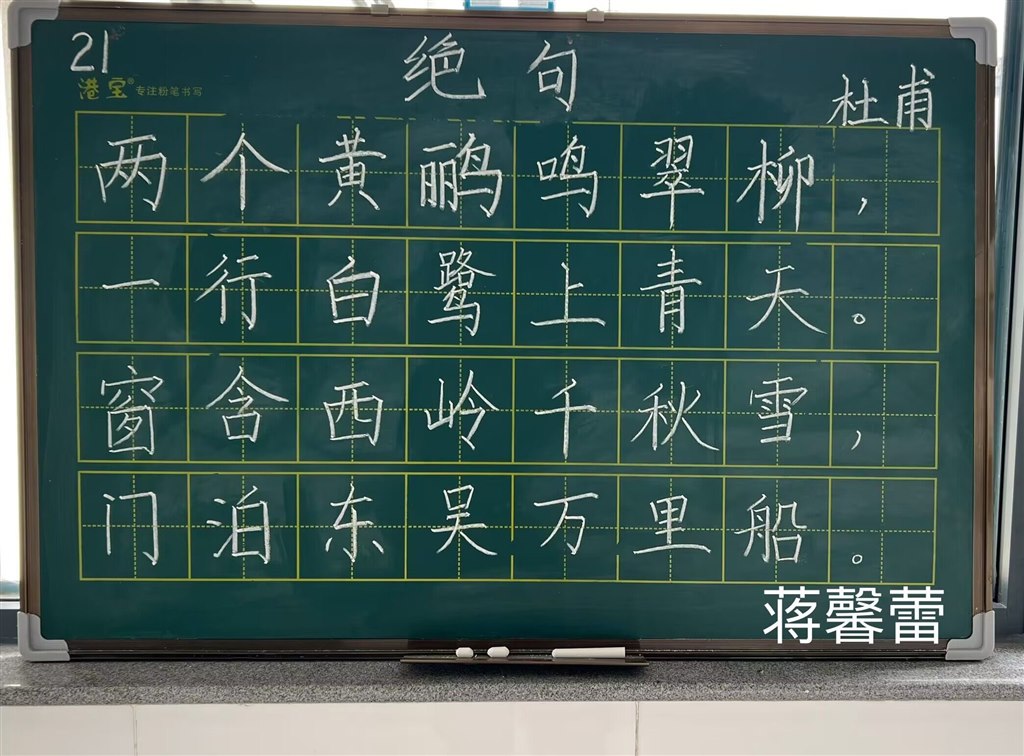 21
港宝® 专注粉笔书写
绝句
杜甫
两个黄鹂鸣翠柳,
一行白鹭上青天。
窗含西岭千秋雪,
门泊东吴万里船。
蒋馨蕾